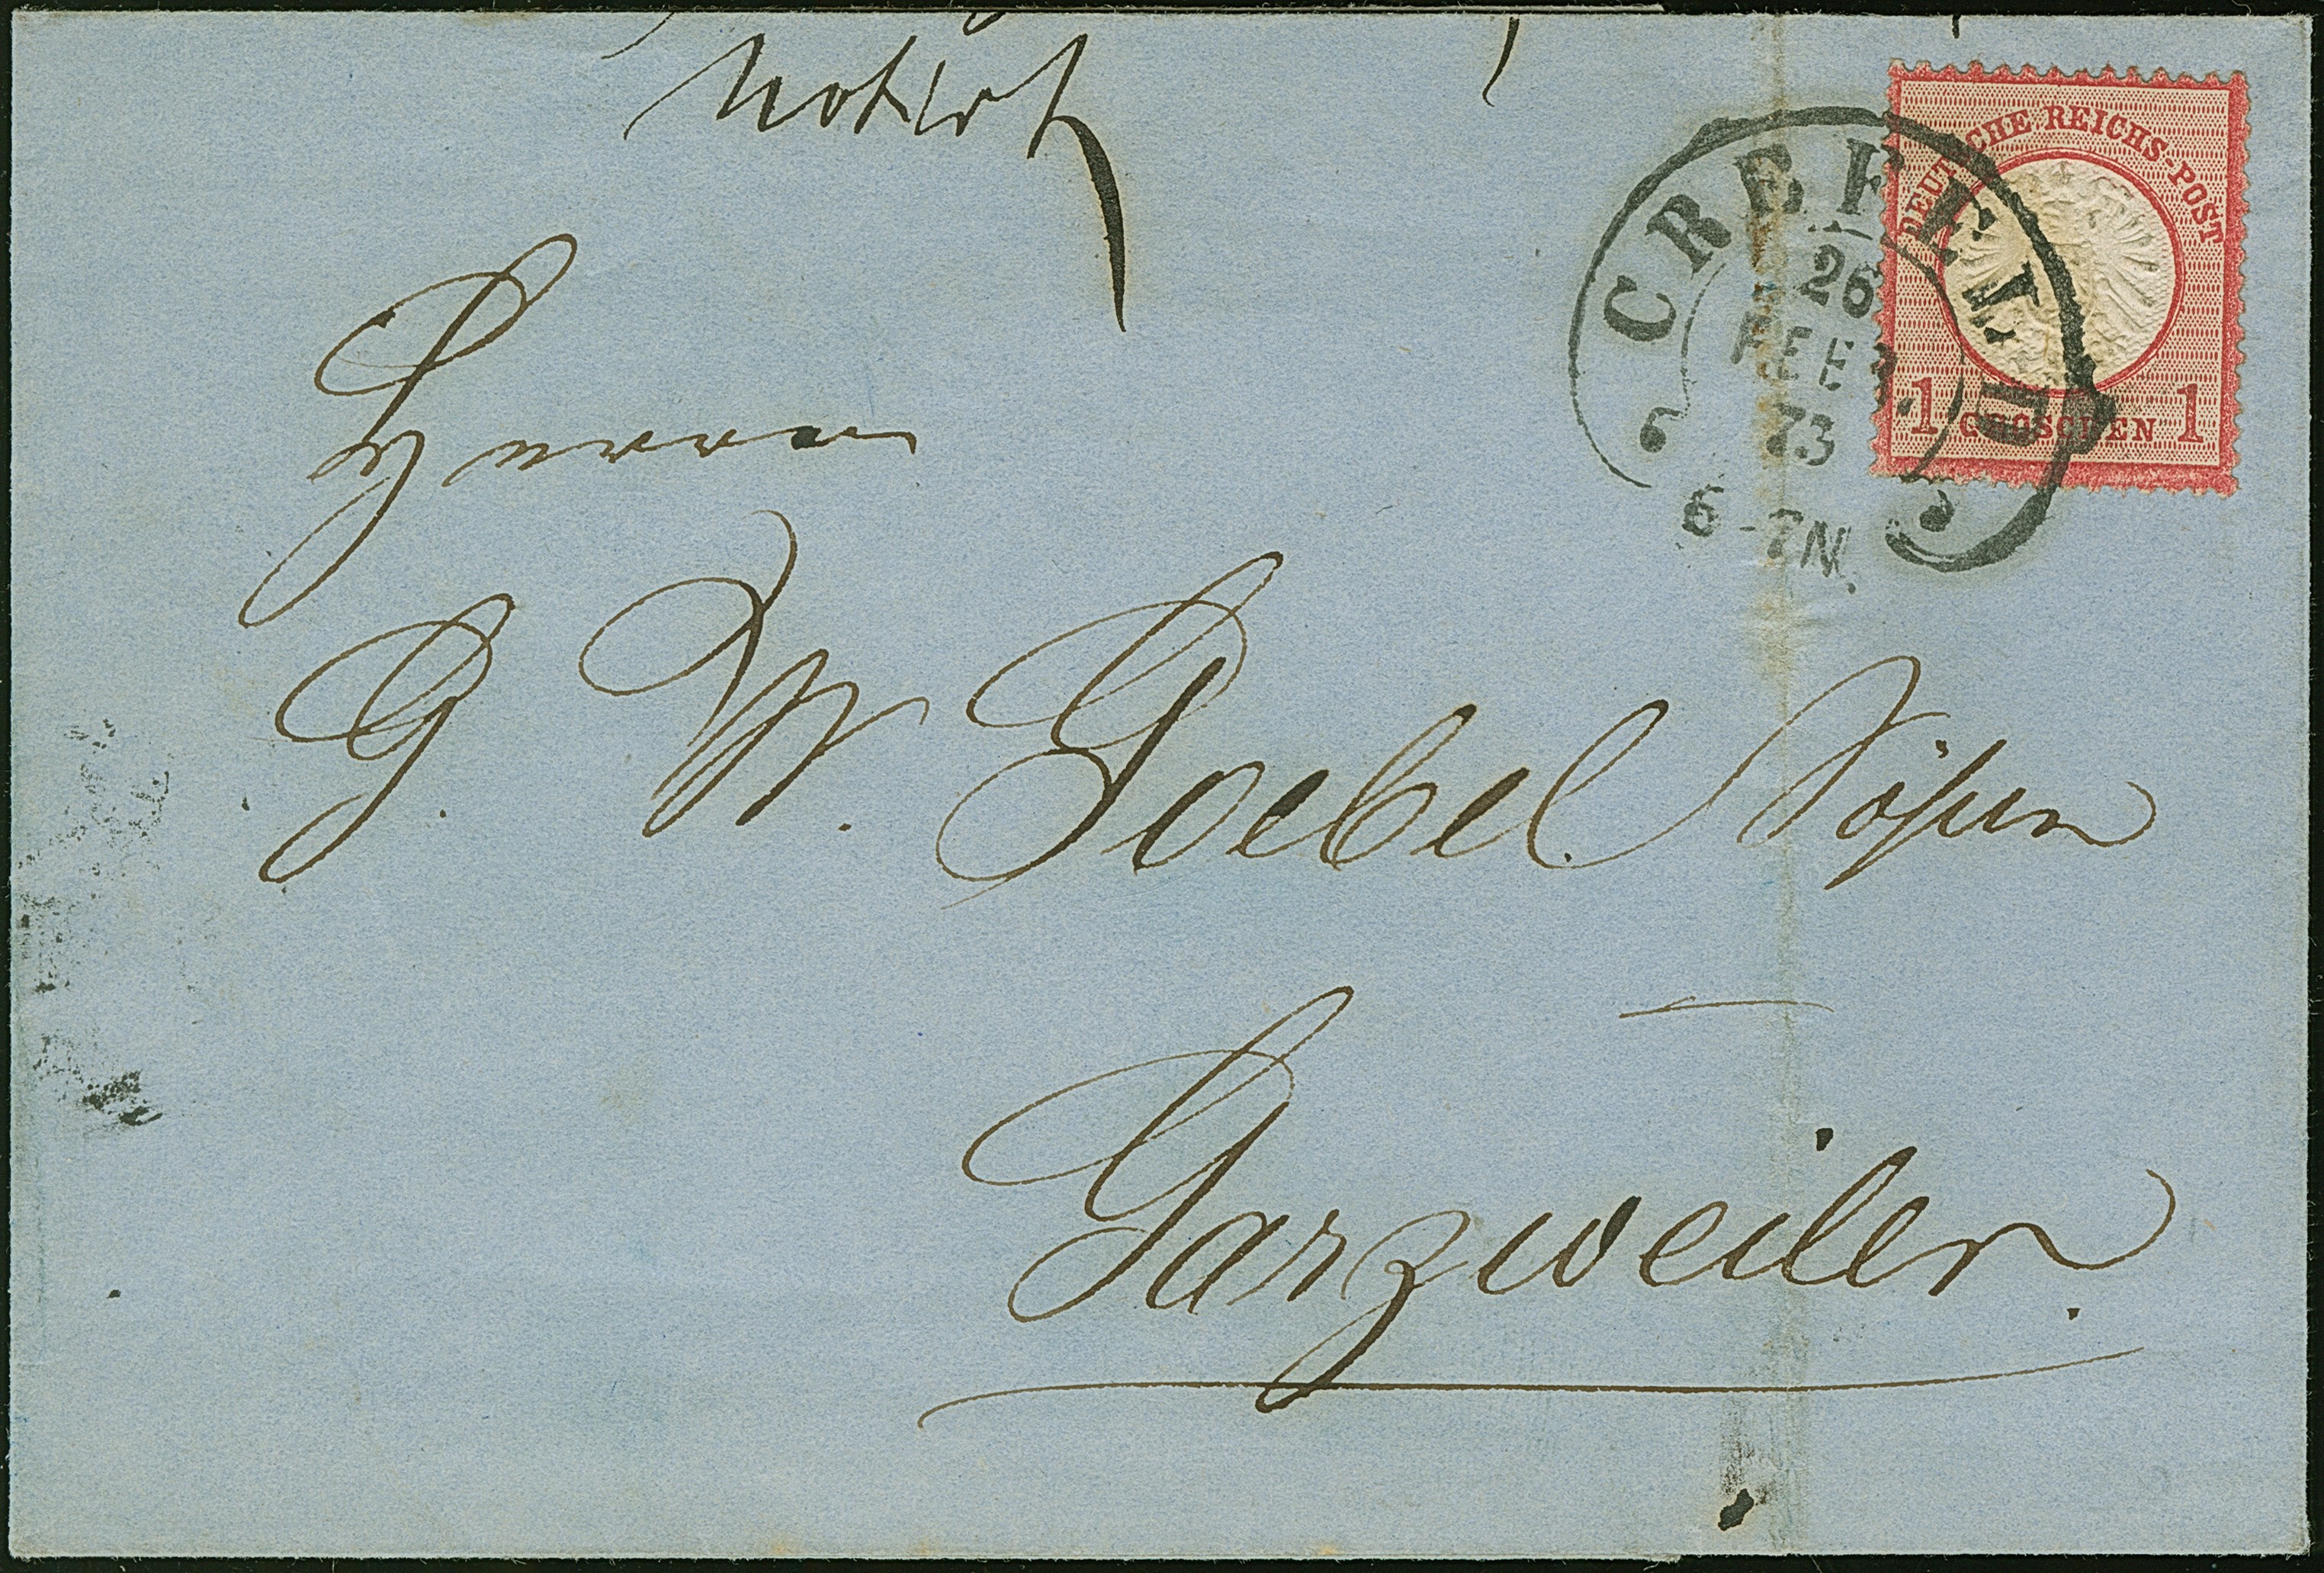 notirt
DEUTSCHE REICHS-POST
1 GROSCHEN 1
CREFELD
26
FEB.
73
6-7N.
Herrn
G. W. Goebel Söhne
Garzweiler.